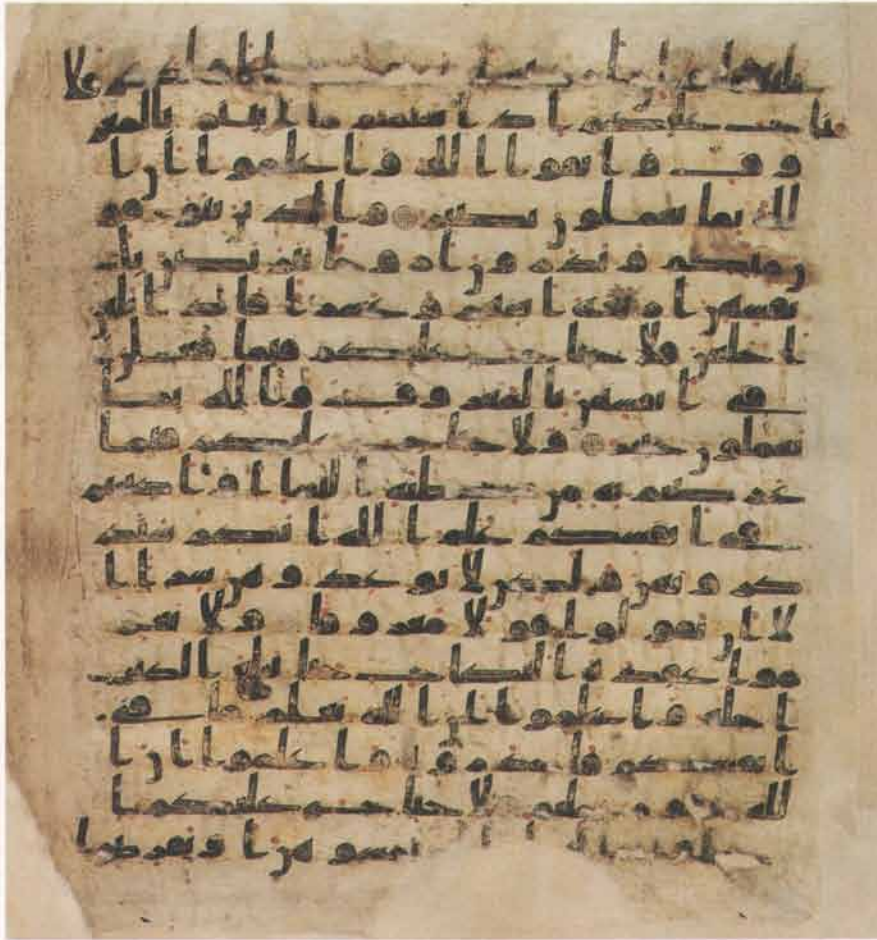 فلا
جناح عليكم اذا سلمتم ما اتيتم بالمعر
وف واتقوا الله واعلموا ان ا
لله بما تعملون بصير والذين يتوفو
ن منكم ويذرون ازوجا يتربصن با
نفسهن اربعة اشهر وعشرا فاذا بلغن
اجلهن فلا جناح عليكم فيما فعلن
في انفسهن بالمعروف والله بما
تعملون خبير ولا جناح عليكم فيما
عرضتم به من خطبة النسا او اكننتم
في انفسكم علم الله انكم ستذ
كرونهن ولكن لا تواعدوهن سرا ا
لا ان تقولوا قولا معروفا ولا تعز
موا عقدة النكاح حتى يبلغ الكتب
اجله واعلموا ان الله يعلم ما في
انفسكم فاحذروه واعلموا ان ا
لله غفور حليم لا جناح عليكم ا
ن طلقتم تمسوهن او تفرضوا